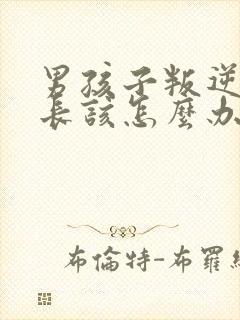 男孩子叛逆
長該怎麼办
布倫特-布羅